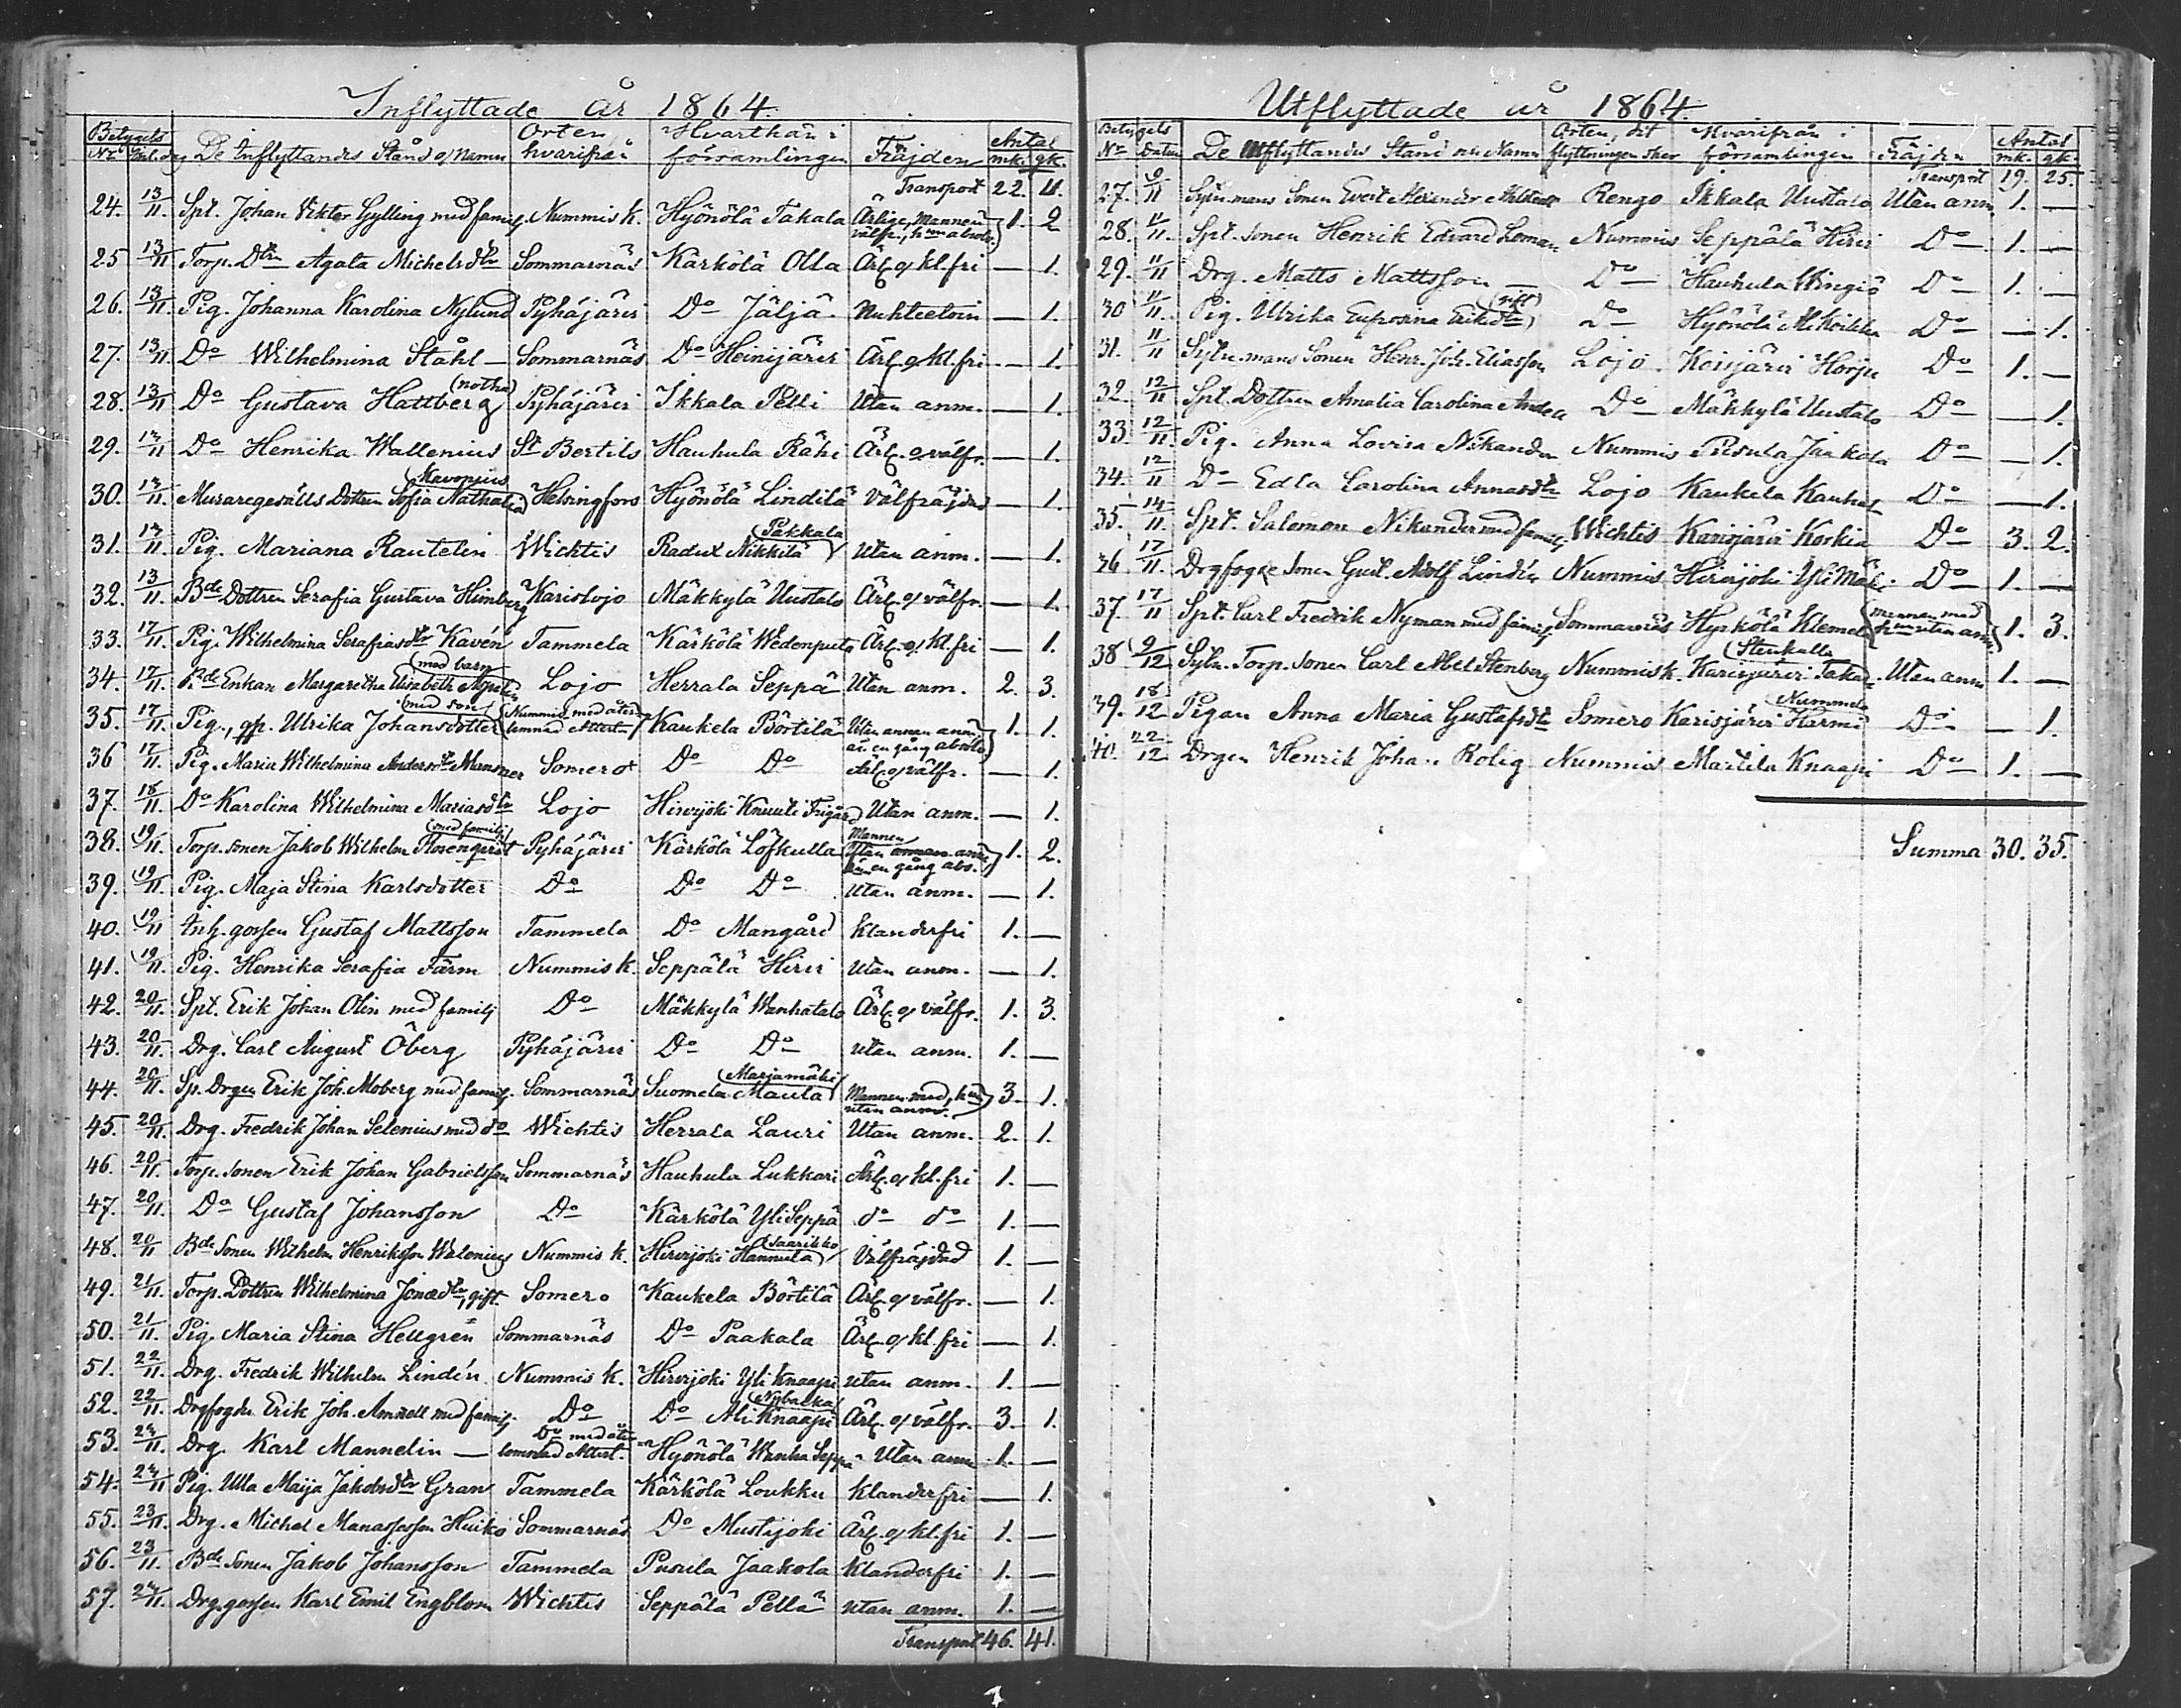 Inflyttade År 1864.
Betygets De Inflyttandes Stånd o/ Namn Orten hvarifrån Hvarthän i församlingen Fräjden Antal
No Inl. dag mk. qk.
Transport 22. 11.
24. 13/11. Spt. Johan Viktor Gylling med familj Nummis k. Hyönölä Takala Ärlige, Mannen välfr., hun absolv. 1. 2
25 13/11 Torp. Dtrn Agata Michelsdtr Sommarnäs Kärkölä Olla Ärl. o/ kl.fri — 1.
26. 13/11. Pig. Johanna Karolina Nylund Pyhäjärvi Do Jäljä Nuhteetoin — 1.
27. 13/11. Do Wilhelmina Ståhl — Sommarnäs Do Heinijärvi Ärl. o/ kl.fri — 1.
28. 13/11 Do Gustava Hattberg (notha) Pyhäjärvi Ikkala Pelli Utan anm. — 1.
29. 13/11 Do Henrika Wallenius St Bertils Hauhula Rähi Ärl. o/ välfr. — 1.
30. 13/11. Muraregesälls Dottren Sofia Nathalia Helsingfors Hyönölä Lindilä Välfräjdad — 1.
31. 13/11. Pig. Mariana Rautelin Wichtis Radus Nikkilä (Pakkala) Utan anm. — 1.
32. 13/11. Bde Dottren Serafia Gustava Himberg Karislojo Mäkkylä Uustalo Ärl. o/ välfr. — 1.
33. 17/11. Pig. Wilhelmina Serafiasdtr Kavén Tammela Kärkölä Wedenputo Ärl. o/ kl.fri — 1.
34. 17/11. Bde Enkan Margaretha Elisabeth (med barn) Lojo Herrala Seppä Utan anm. 2. 3.
35. 17/11. Pig., qp. Ulrika Johansdotter (med son) Nummis med återlemnad Attest Kaukela Börtilä Utan annan anm. än en gång absolv. 1. 1.
36 17/11. Pig. Maria Wilhelmina Andersdtr Mansner Somero Do Do Ärl. o/ välfr. — 1.
37. 18/11. Do Karolina Wilhelmina Mariasdtr Lojo Hirvijoki Knuuti Frigård Utan anm. — 1.
38. 19/11. Torp. sonen Jakob Wilhelm Rosenqvist (med familj) Pyhäjärvi Kärkölä Löfkulla Mannen Utan annan anm. än en gång abs. 1. 2.
39. 19/11. Pig. Maja Stina Karlsdotter Do Do Do Utan anm. — 1.
40. 19/11 Inh. gossen Gustaf Mattsson Tammela Do Mangård klanderfri 1. —
41. 19/11. Pig. Henrika Serafia Färm Nummis k. Seppälä Hiiri Utan anm. — 1.
42. 20/11. Spt. Erik Johan Olin med familj Do Mäkkylä Wanhatalo Ärl. o/ välfr. 1. 3.
43. 20/11. Drg. Carl August Öberg Pyhäjärvi Do Do utan anm. 1. —
44. 20/11. Sp. Drgen Erik Joh. Moberg med familj. Sommarnäs Suomela Maula (Marjamäki) Mannen med, hun utan anm. 3. 1.
45. 20/11. Drg. Fredrik Johan Selenius med do Wichtis Herrala Lauri Utan anm. 2. 1.
46. 20/11. Torp. sonen Erik Johan Gabrielsson Sommarnäs Hauhula Lukkari Ärl. o/ kl. fri 1. —
47. 20/11. Do Gustaf Johansson Do Kärkölä Yli Seppä do do 1. —
48. 20/11 Bde Sonen Wilhelm Henriksson Walenius Nummis k. Hirvijoki Hannula (Saarikko) Välfräjdad 1. —
49. 21/11. Torp. Dottren Wilhelmina Jonasdtr, gift. Somero Kaukela Börtilä Ärl. o/ välfr. — 1.
50. 21/11. Pig. Maria Stina Hellgren Sommarnäs Do Paakala Ärl. o/ kl. fri — 1.
51. 22/11. Drg. Fredrik Wilhelm Lindén Nummis k. Hirvijoki Yli Knaapi utan anm. 1. —
52. 22/11. Drgfogden Erik Joh. Amnell med familj. Do Do Ali Knaapi (Nybacka) Ärl. o/ välfr. 3. 1.
53. 22/11. Drg. Karl Mannelin — Do med återlemnad Attest. Hyönölä Wanha Seppä Utan anm. 1. —
54. 22/11 Pig. Ulla Maija Jakobsdtr Gran Tammela Kärkölä Loukku Klanderfri — 1.
55. 23/11. Drg. Michel Manassesson Huiko Sommarnäs Do Mustijoki Ärl. o/ kl. fri 1. —
56. 23/11. Bde Sonen Jakob Johansson Tammela Pusula Jaakola Klanderfri 1. —
57. 24/11. Drg. gossen Karl Emil Engblom Wichtis Seppälä Pellä utan anm. 1. —
Transport 46. 41.
Utflyttade år 1864.
Betygets De Utflyttandes Stånd och Namn Orten, dit flyttningen sker Hvarifrån i församlingen Fräjden Antal
No Datum mk. qk.
Transport 19. 25.
27. 9/11 Sytn. mans Sonen Evert Alexander Rengo Ikkala Uustalo Utan anm. 1. —
28. 11/11. Spt. sonen Henrik Edvard Loman Nummis Seppälä Hiiri Do 1. —
29. 11/11 Drg. Matts Mattsson — Do Hauhula Wingiö Do 1. —
30 11/11. Pig. Ulrika Eufrosina Eriksdtr (gift) Do Hyönölä Do — 1.
31. 11/11 Sytn. mans Sonen Henr. Joh. Eliasson Lojo Koisjärvi Horju Do 1. —
32. 12/11 Spt. Dottren Amalia Carolina Do Mäkkylä Uustalo Do — 1.
33. 12/11. Pig. Anna Lovisa Nikander Nummis Pusula Jaakola Do — 1.
34. 12/11 Do Edla Carolina Annasdtr Lojo Kaukela Do — 1.
35. 14/11. Spt. Salomon Nikander med familj Wichtis Karisjärvi Korkia Do 3. 2.
36 17/11. Drgfogde Sonen Gust. Adolf Lindén Nummis Hirvijoki Yli Do 1. —
37. 17/11 Spt. Carl Fredrik Nyman med familj Sommarnäs Hyrkölä Klemelä mannen med hun utan anm. 1. 3.
38 9/12. Sytn. Torp. sonen Carl Abel Stenberg Nummis k. Karisjärvi (Stenkulla) Utan anm 1. —
39. 18/12 Pigan Anna Maria Gustafsdtr Somero Karisjärvi Harmi (Nummela) Do — 1.
40. 22/12 Drgen Henrik Johan Rolig Nummis Marttila Knaapi Do 1. —
Summa 30. 35.